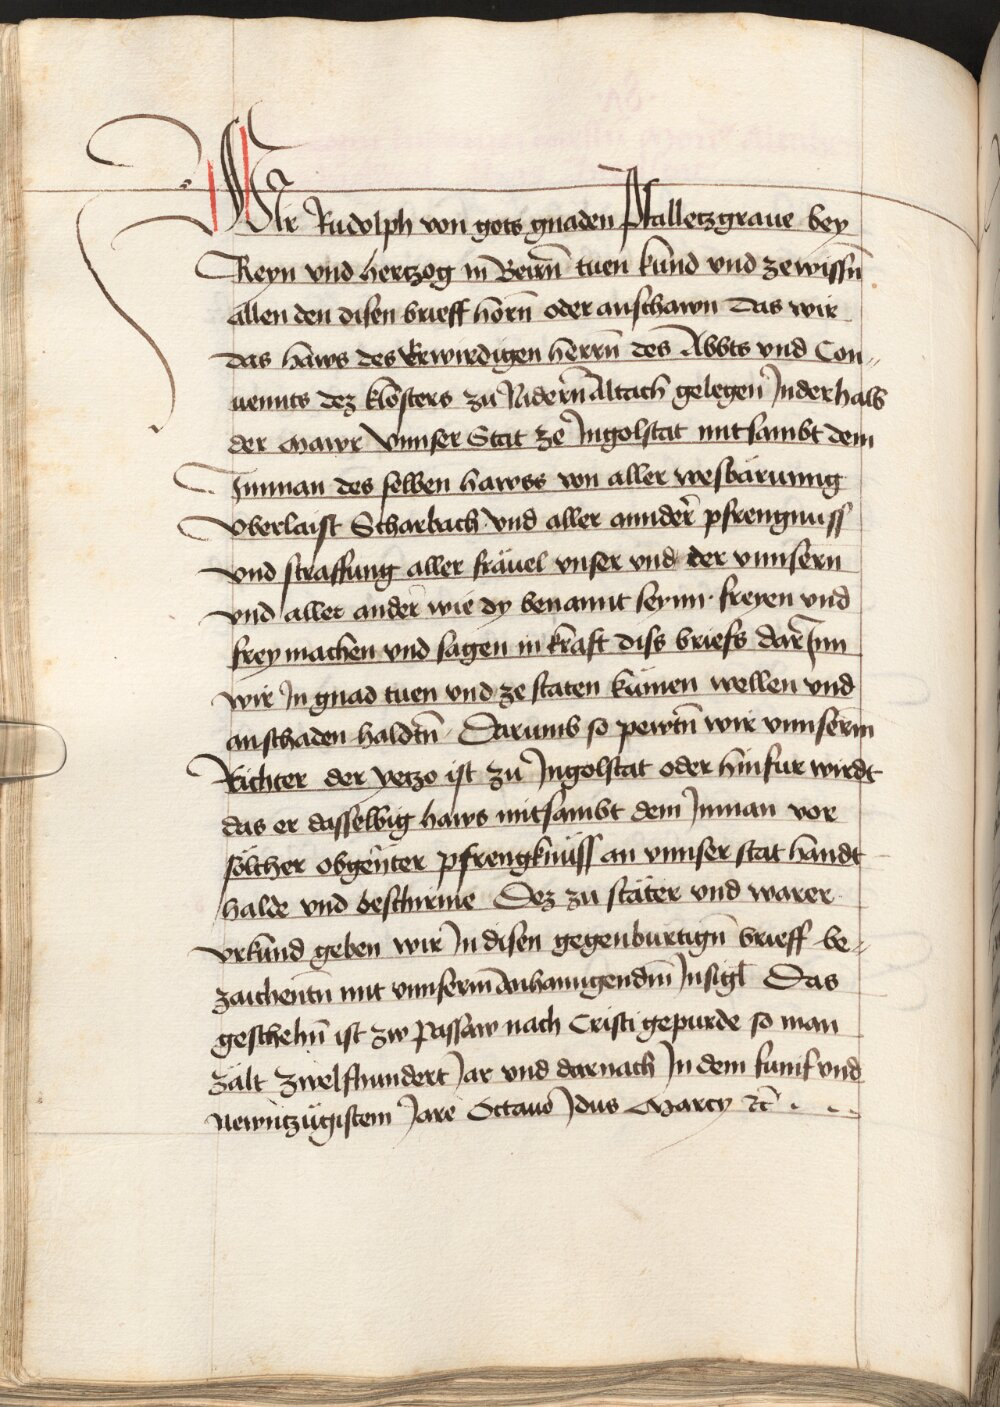 Wir Rudolph von gots gnaden Pfalletzgraue bey
Reyn vnd hertzog in Beirñ tuen kund vnd ze wissñ
allen den disen brieff hörñ oder anschawn Das wir
das haws des Erwirdigen herrñ des Abbts vnd Con„
uennts dez klosters zu Nidern̄ Altach gelegen Inderhalb
der Mawr Vnnser Stat ze Ingolstat mitsambt dem
Inman des selben hawss von aller wesbärunng
Vberlaist Scharbach vnd aller annder̄ pfrengnuss
vnd straffung aller fräuel vnser vnd der vnnsern
vnd aller ander̄ wie dy benannt seynn. freyen vnd
frey machen vnd sagen in kraft diss briefs dar Inn
wir In gnad tuen vnd ze staten kümen wellen vnd
an schaden haldtñ Darumb so pewtñ wir vnnserm
Richter der yetzo ist zu Ingolstat oder hinfur wirdt
das er dasselbig haws mitsambt dem Inman vor
sölcher obgen̄ter pfrengknüss an vnnser stat handt
halde vnd beschirme Dez zu stäter vnd warer
vrkund geben wir In disen gegenburtign̄ brieff be„
zaichentn̄ mit vnnserm̄ Anhanngendm̄ Insigl Das
geschehn̄ ist zw Passaw nach Cristi gepurde so man
zält zwelfhundert Jar vnd darnach In dem funf vnd
Newntzügistem Jare Octauo Idus Marcy ꝛc̄ . . .